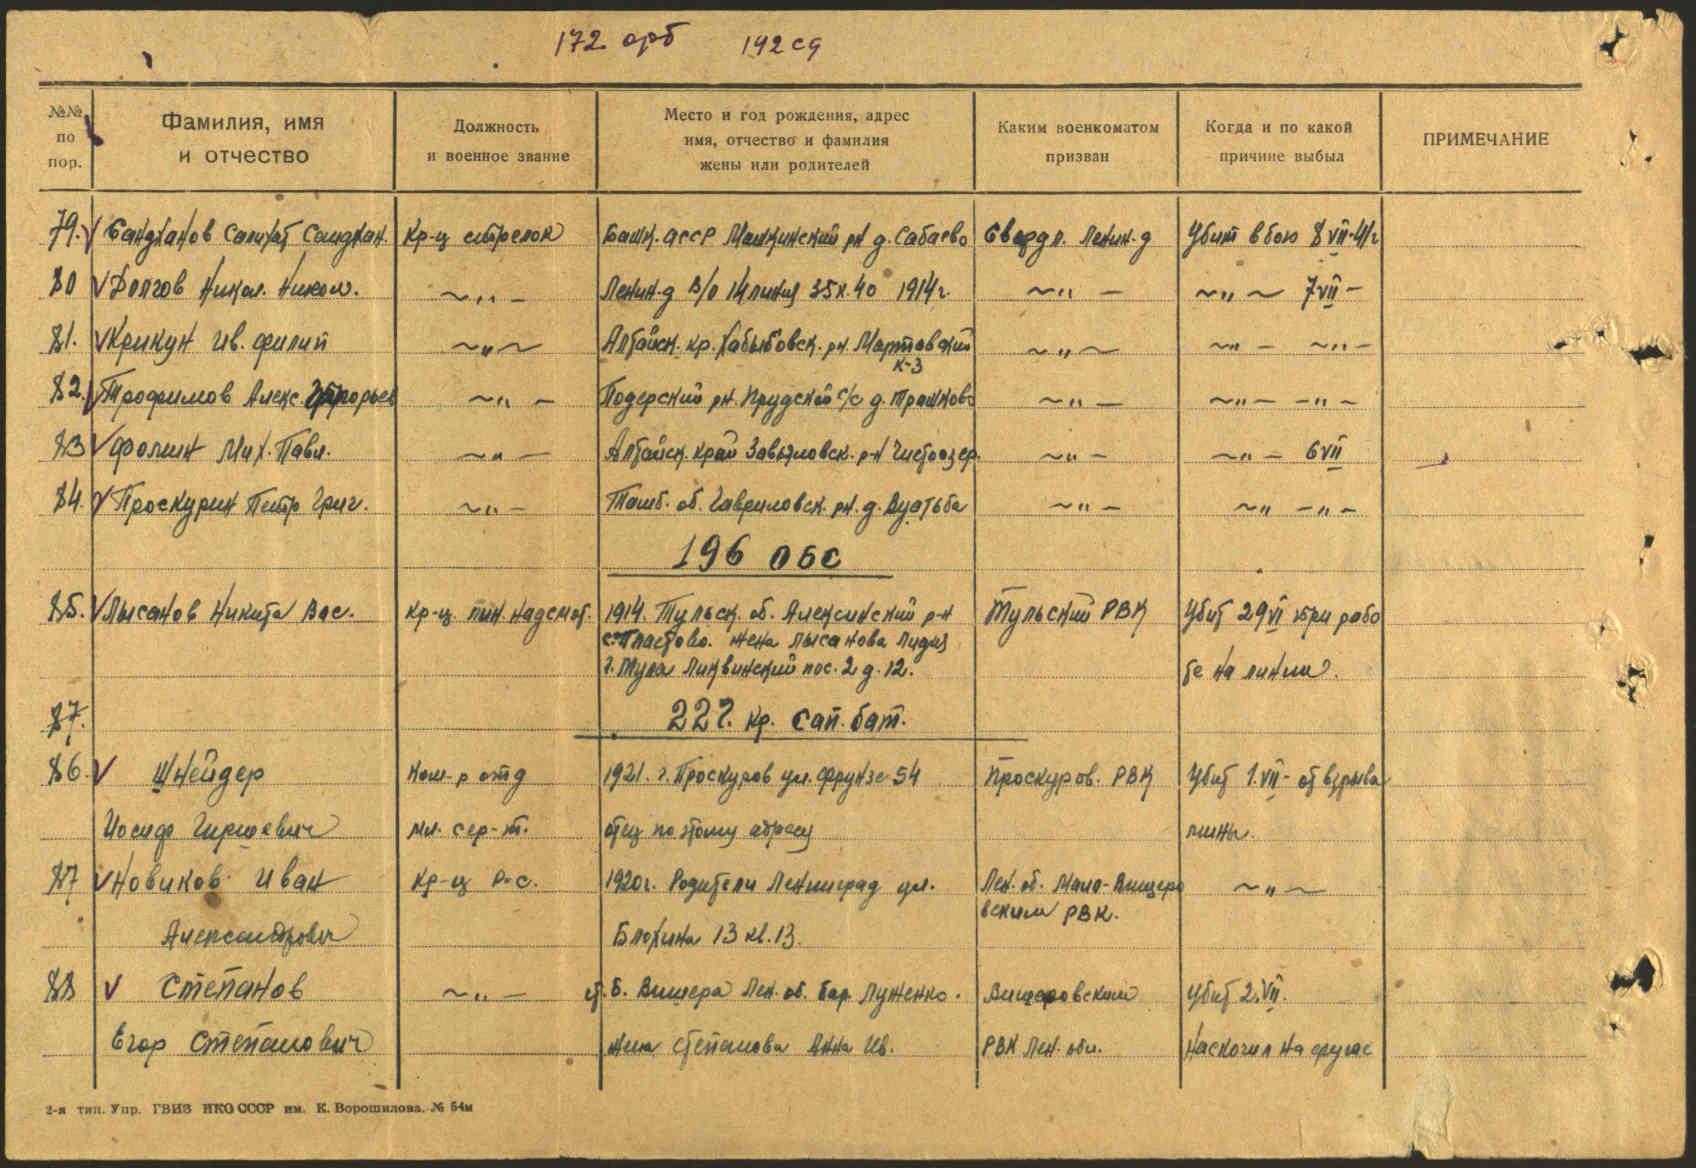 172 орб 142 сд
№№ по пор.
Фамилия, имя и отчество
Должность и военное звание
Место и год рождения, адрес имя, отчество и фамилия жены или родителей
Каким военкоматом призван
Когда и по какой причине выбыл
ПРИМЕЧАНИЕ
79. Салихат Кр-ц стрелок Башк. АССР р-н д. Сабаево Свердл. Ленин-д Убит в бою 8 VII-41 г
80 Долгов Никол. Никол. ~ „ – Ленин-д В/О 14 линия 35 к. 40 1914 г. ~ „ – ~ „ ~ 7 VII –
81. Крикун Ив. Филип ~ „ ~ Алтайск. кр. Хабыбовск. р-н. Мартовский ~ „ ~ ~ „ – ~ „ –
к-з
82. Трофимов Алекс. Григорьев ~ „ – р-н. Прудский с/с д. Трашково ~ „ – ~ „ – – „ –
83 Фомин Мих. Павл. ~ „ – Алтайск. край Завьяловск. р-н Чистоозер. ~ „ – ~ „ – 6 VII
84. Проскурин Петр Григ. ~ „ – об. Гавриловск. р-н. д. ~ „ – ~ „ – „ –
196 ОБС
85. Лысанов Никита Вас. Кр-ц. лин. надсмот. 1914. Тульск. об. Алексинский р-н Тульский РВК Убит 29 VI при рабо
с. Пластово. жена Лысанова Лидия
г. Тула Ликвинский пос. 2 д. 12. те на линии.
87. 227. кр. сап. бат.
86. Шнейдер Ком-р отд 1921. г. Проскуров ул. Фрунзе 54 Проскуров. РВК Убит 1. VII – от взрыва
Иосиф Гиршевич мл. сер-т. отец по этому адресу мины.
87 Новиков Иван Кр-ц р-с. 1920 г. Родители Ленинград ул. Лен. об. Мало-Вишеро ~ „ ~
вским РВК.
Александрович Блохина 13 кв. 13.
88 Степанов ~ „ – ст. Б. Вишера Лен. об. бар. Луженко. Вишеровским Убит 2. VII.
Егор Степанович жена Степанова Анна Ив. РВК Лен. обл. Наскочил на фугас
2-я тип. Упр. ГВИЗ НКО СССР им. К. Ворошилова. № 54м